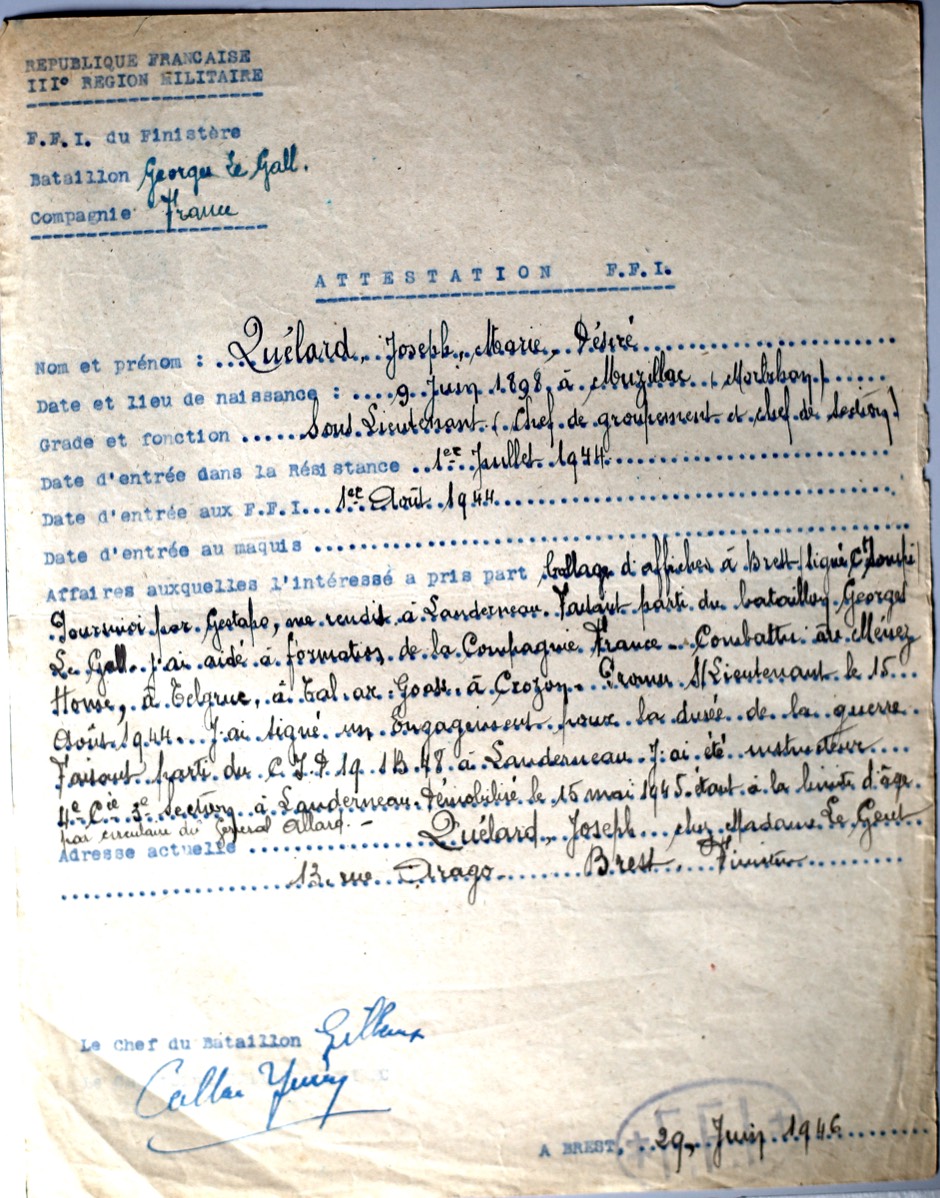 REPUBLIQUE FRANCAISE
III° REGION MILITAIRE
F.F.I. du Finistère
Bataillon Georges Le Gall.
Compagnie France
ATTESTATION F.F.I.
Nom et prénom : Quélard, Joseph, Marie, Désiré
Date et lieu de naissance : 9 Juin 1898 à Muzillac (Morbihan)
Grade et fonction Sous Lieutenant (Chef de groupement et chef de section)
Date d'entrée dans la Résistance 1er Juillet 1944
Date d'entrée aux F.F.I. 1er Août 1944
Date d'entrée au maquis
Affaires auxquelles l'intéressé a pris part Collage d'affiches à Brest (signé
par Gestapo, me rendis à Landerneau. Faisant parti du bataillon Georges
Le Gall. J'ai aidé à formation de la Compagnie France. Combattu au Ménez
Home, à Telgruc, à Tal ar Goas. à Crozon. Promu S/Lieutenant le 15
Août 1944. J'ai signé un Engagement pour la durée de la guerre
Faisant parti du C.I.D 19 IB 48 à Landerneau. J'ai été instructeur
4e Cie 3e Section à Landerneau. Démobilisé le 15 mai 1945 étant à la limite d'âge
par circulaire du Général Allard. -
Adresse actuelle Quélard, Joseph chez Madame Le
13, rue Arago Brest, Finistère
Le Chef du Bataillon
A BREST, 29, Juin 1946